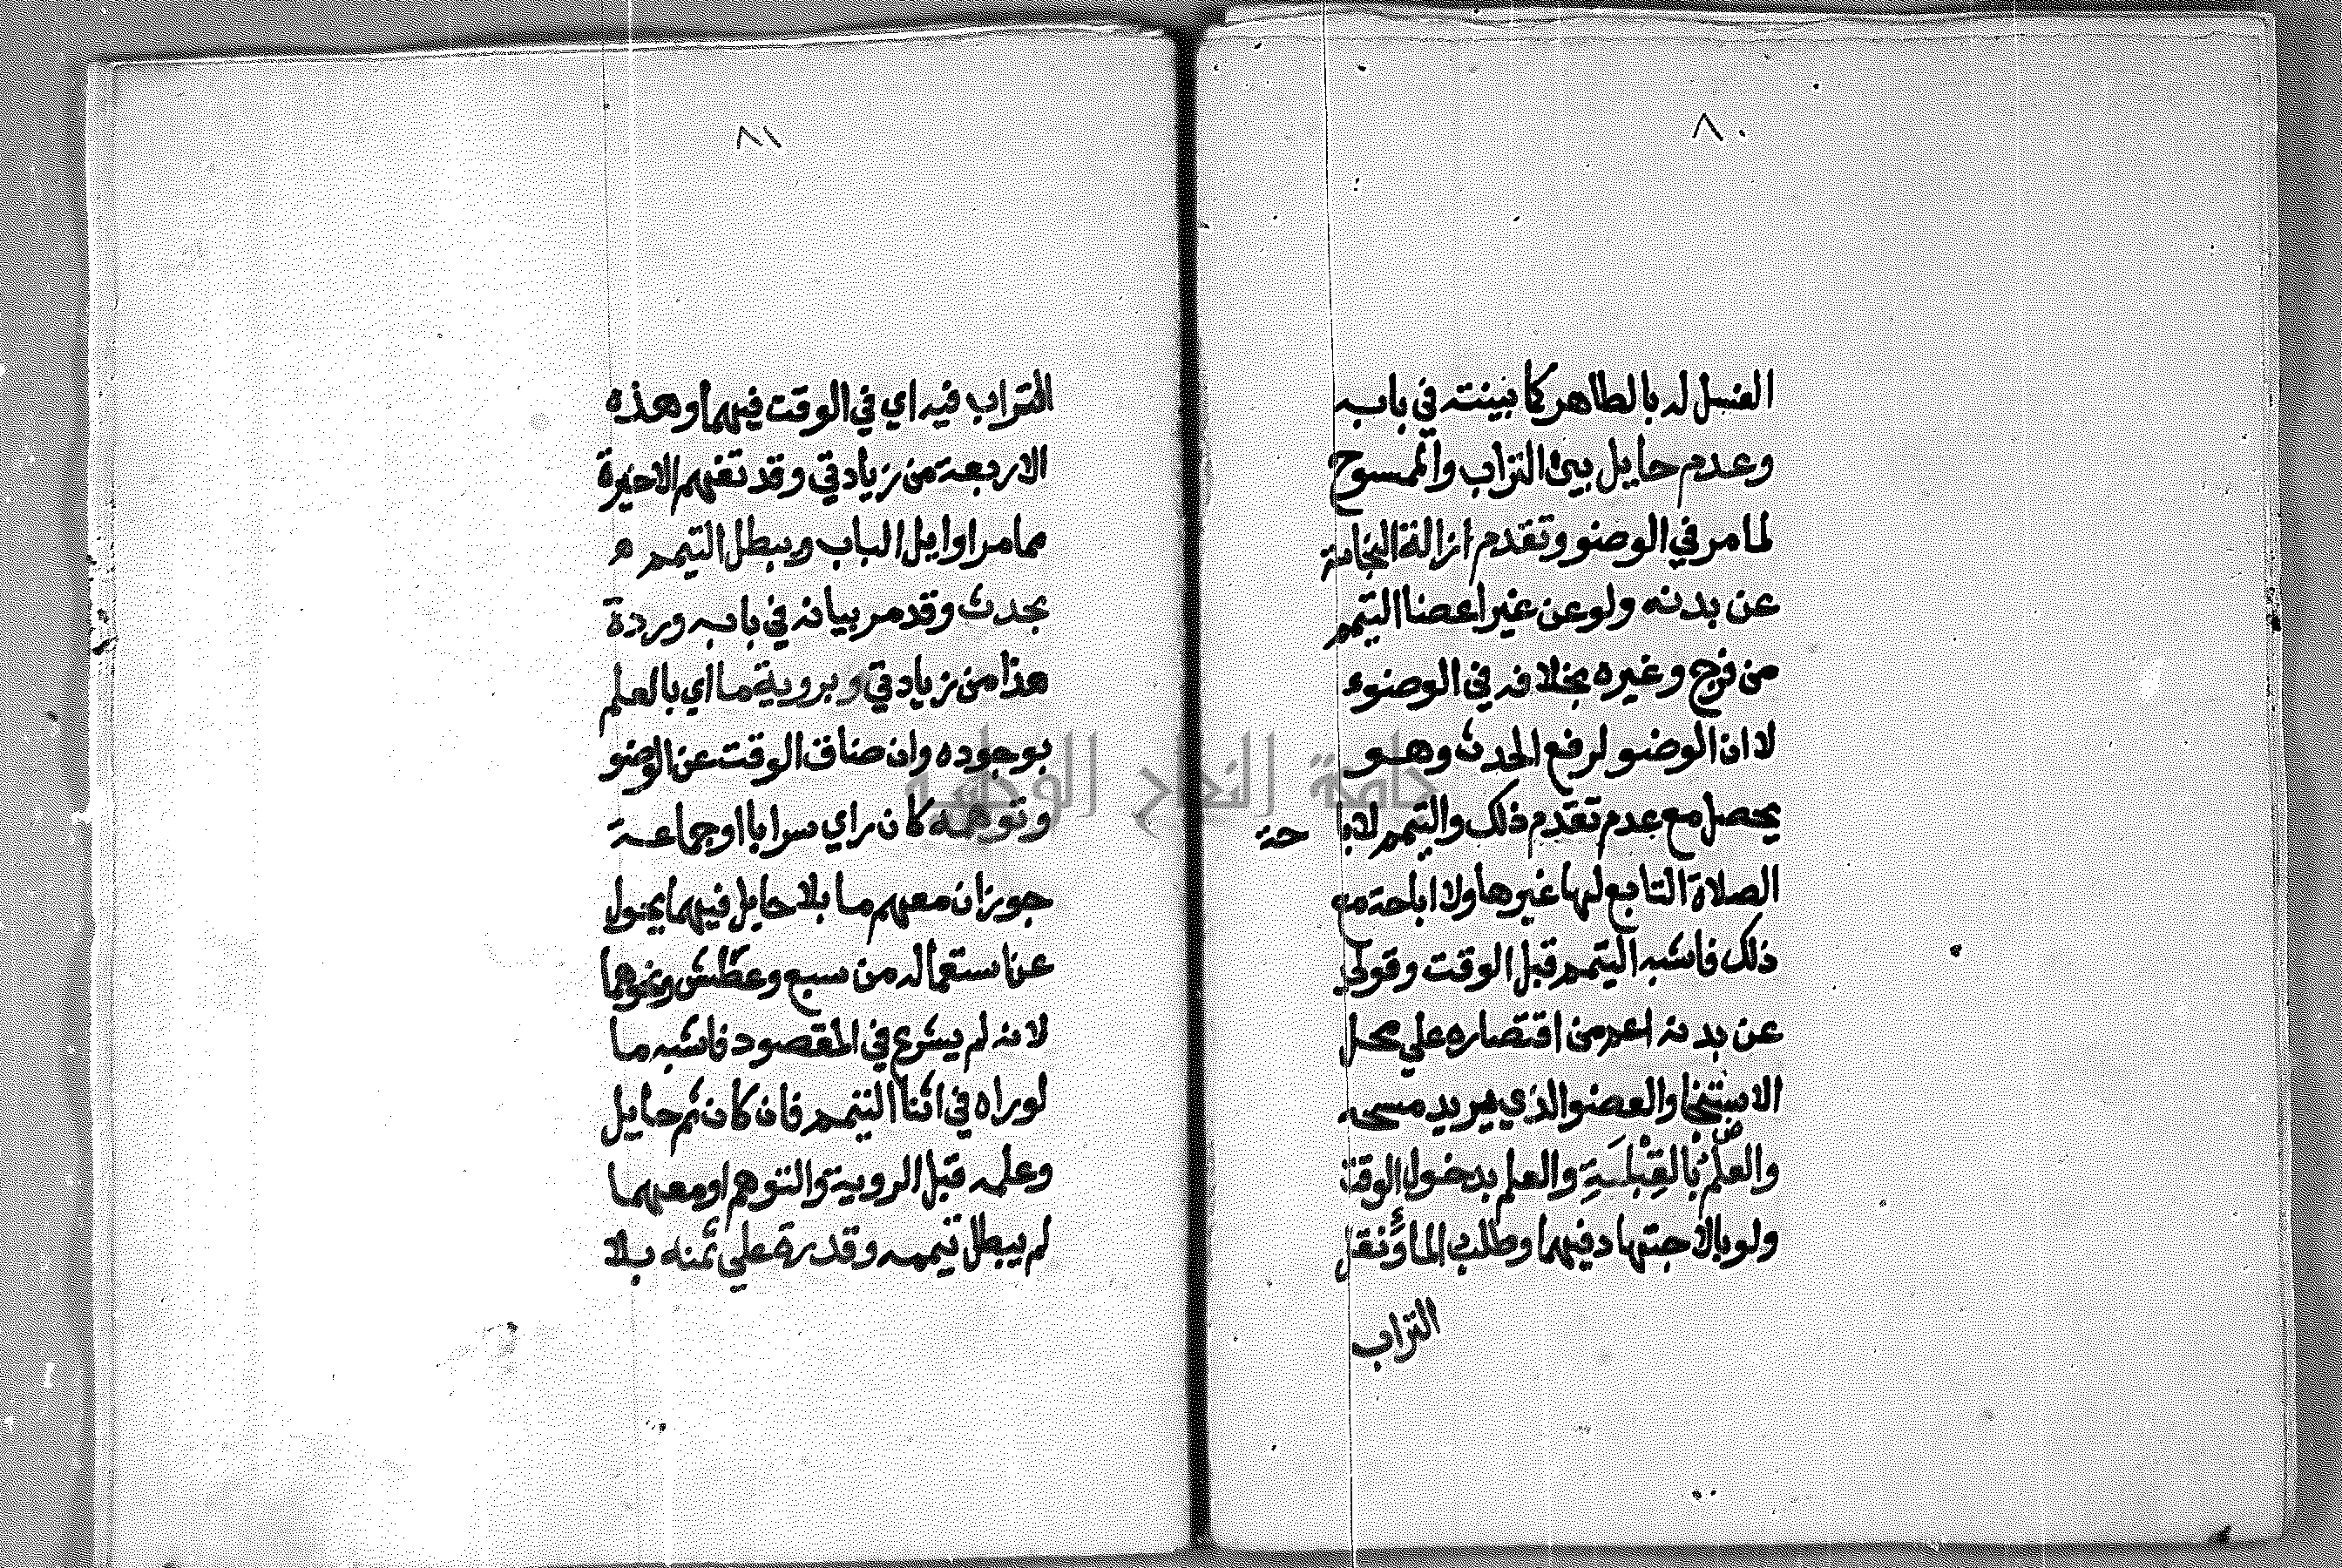 ٨٠
الغسل له بالطاهر كما بينته في بابه
وعدم حايل بين التراب والممسوح
لما مر في الوضو وتقدم ازالة النجاسة
عن بدنه ولو عن غير اعضا التيمم
من فرج وغيره بخلافه في الوضوء
لان الوضو لرفع الحدث وهو
يحصل مع عدم تقدم ذلك والتيمم لابا حة
الصلاة التابع لها غيرها ولا اباحة مع
ذلك فاشبه التيمم قبل الوقت وقولي
عن بدنه اعم من اقتصاره علي محل
الاستنجا والعضو الذي يريد مسحه
والعلم بالقِبْلَةِ والعلم بدخول الوقت
ولو بالاجتهاد فيهما وطلب الما ونقل
التراب
٨١
التراب فيه اي في الوقت فيهما وهذه
الاربعة من زيادتي وقد تفهم الاخيرة
مما مر اوايل الباب ويبطل التيمم
بحدث وقد مر بيانه في بابه وردة
هذا من زيادتي وبروية ما اي بالعلم
بوجوده وان ضاق الوقت عن الوضو
وتوهمه كان راي سرابا او جماعة
جوز ان معهم ما بلا حايل فيهما يحول
عن استعماله من سبع وعطش ونحوهما
لانه لم يشرع في المقصود فاشبه ما
لوراه في اثنا التيمم فان كان ثم حايل
وعلمه قبل الروية والتوهم او معهما
لم يبطل تيممه وقدرة علي ثمنه بلا
جامعة النجاح الوطنية